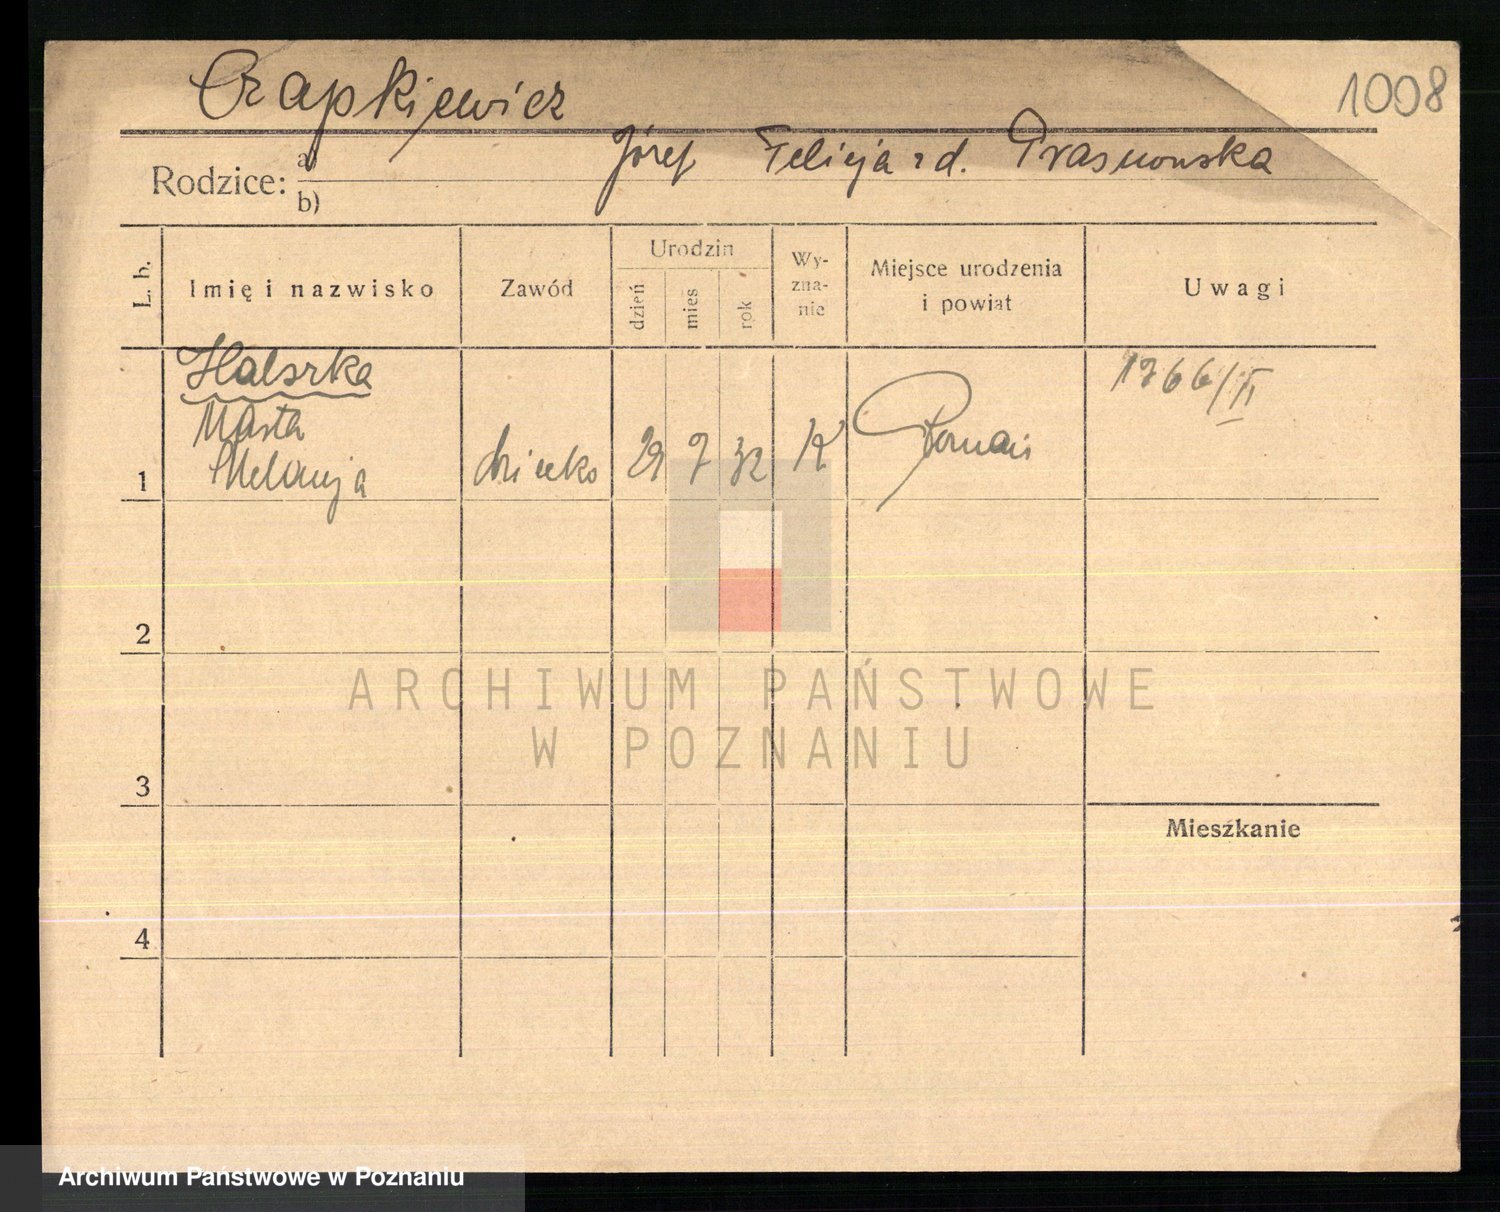 Czapkiewicz
1008
Rodzice: a)
Józef Felicja z d. Prasnowska
b)
L. b.
Imię i nazwisko
Zawód
Urodzin
dzień
mies
rok
Wy-
zna-
nie
Miejsce urodzenia
i powiat
Uwagi
Halszka
Marta
Melanja
1
dziecko
29
7
32
K
Poznań
1766/II
2
3
4
Mieszkanie
ARCHIWUM PAŃSTWOWE
W POZNANIU
Archiwum Państwowe w Poznaniu